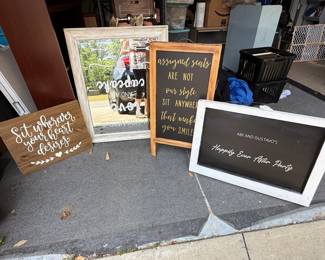 Sit wherever
your heart
desires
love
cupcake
assigned seats
ARE NOT
our style
SIT ANYWHERE
that makes
you SMILE
ABI AND GUSTAVO'S
Happily Ever After Party